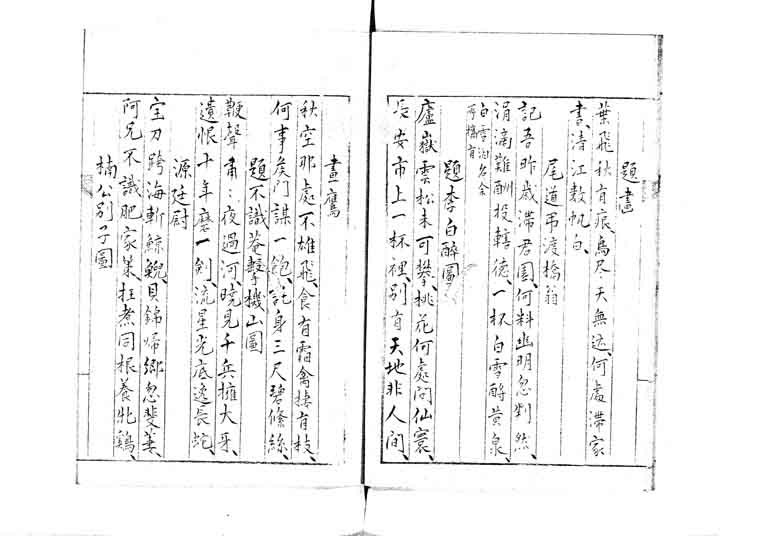 題畫
葉飛秋有痕、鳥尽天無迹、何處滞家
書、清江数帆白、
尾道弔渡橋翁
記吾昨歳滞君園、何料幽明忽判然、
涓滴難酬投轄德、一杯白雪酹黄泉、
白雪泊名余
再橋有
題李白醉圖
廬嶽雲松未可攀、桃花何處问仙寰、
长安市上一杯裡、别有天地非人间、
畫鷹
秋空那處不雄飛、食有霜禽棲有枝、
何事矦门謀一飽、託身三尺碧絛絲、
題不識菴擊機山圖
鞭聲肅〻夜過河、曉見千兵擁大牙、
遺恨十年磨一劍、流星光底逸長蛇、
源廷尉
宝刀跨海斬鯨鯢、貝錦帰郷忽斐萋、
阿兄不識肥家策、狂煮同根養牝鶏、
楠公别子圖